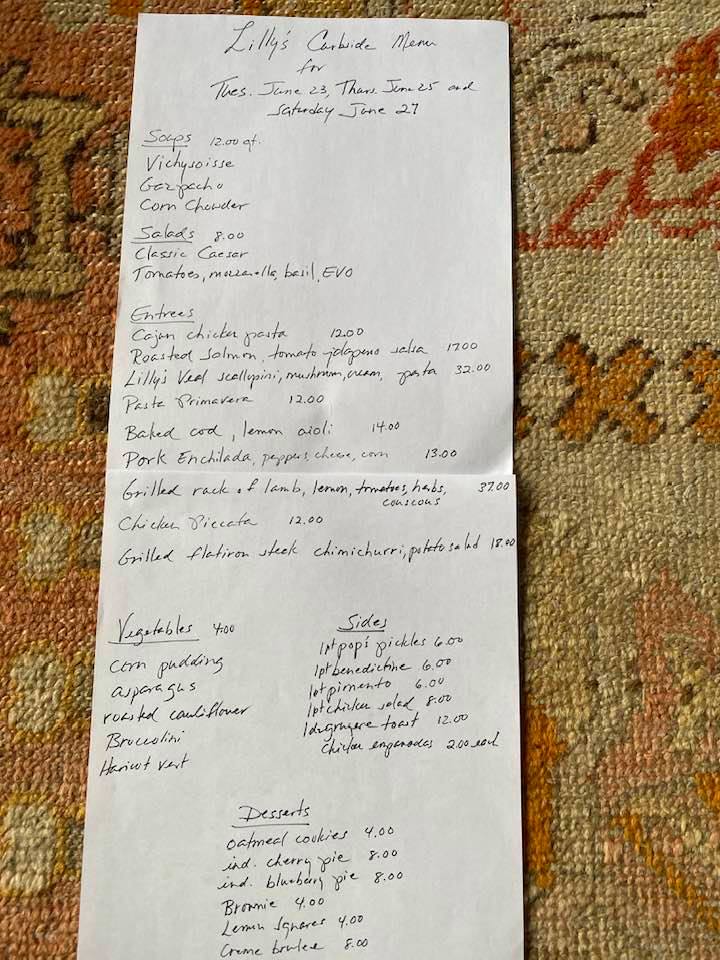 Lilly's Curbside Menu
for
Tues. June 23, Thurs. June 25 and
Saturday June 27
Soups 12.00 qt.
Vichysoisse
Gazpacho
Corn Chowder
Salads 8.00
Classic Caesar
Tomatoes, mozzarella, basil, EVO
Entrees
Cajun chicken pasta 12.00
Roasted salmon, tomato jalapeno salsa 17.00
Lilly's Veal scallypini, mushroom, cream, pasta 32.00
Pasta Primavera 12.00
Baked cod, lemon aioli 14.00
Pork Enchilada, peppers, cheese, corn 13.00
Grilled rack of lamb, lemon, tomatoes, herbs, 37.00
couscous
Chicken Piccata 12.00
Grilled flatiron steak chimichurri, potato salad 18.00
Vegetables 4.00
corn pudding
asparagus
roasted cauliflower
Broccolini
Haricot vert
Sides
1pt pop's pickles 6.00
1pt benedictine 6.00
1pt pimento 6.00
1pt chicken salad 8.00
1dz gruyere toast 12.00
chicken empanadas 2.00 each
Desserts
oatmeal cookies 4.00
ind. cherry pie 8.00
ind. blueberry pie 8.00
Brownie 4.00
Lemon squares 4.00
Creme brulee 8.00